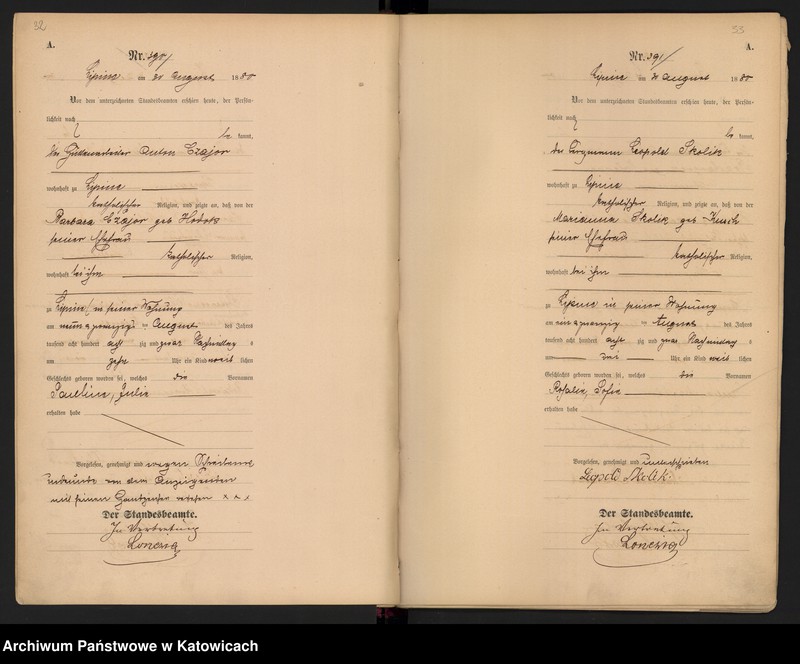 32
A.
Nr. 390
Lipine am 30 August 1880
Vor dem unterzeichneten Standesbeamten erschien heute, der Persön-
lichkeit nach
be kannt,
der Hüttenarbeiter Czajor
wohnhaft zu Lipine
katholischer Religion, und zeigte an, daß von der
Barbara Czajor geb
seiner Ehefrau
katholischer Religion,
wohnhaft bei ihm
zu Lipine in seiner Wohnung
am August des Jahres
tausend acht hundert acht zig und zwar Nachmittag s
um zehn Uhr ein Kind weib lichen
Geschlechts geboren worden sei, welches die Vornamen
Paulina, Julie
erhalten habe
Vorgelesen, genehmigt und wegen Schreibens
unkunde von dem Anzeigenden
mit seinen Handzeichen versehen x x x
Der Standesbeamte.
In Vertretung
33
A.
Nr. 391
Lipine am August 1880
Vor dem unterzeichneten Standesbeamten erschien heute, der Persön-
lichkeit nach
be kannt,
der Leopold Skolik
wohnhaft zu Lipine
katholischer Religion, und zeigte an, daß von der
Marianna Skolik geb
seiner Ehefrau
katholischer Religion,
wohnhaft bei ihm
zu Lipine in seiner Wohnung
am August des Jahres
tausend acht hundert acht zig und zwar Nachmittag s
um Uhr ein Kind weib lichen
Geschlechts geboren worden sei, welches die Vornamen
Rosalie, Sofie
erhalten habe
Vorgelesen, genehmigt und unterschrieben
Skolik
Der Standesbeamte.
In Vertretung
Archiwum Państwowe w Katowicach